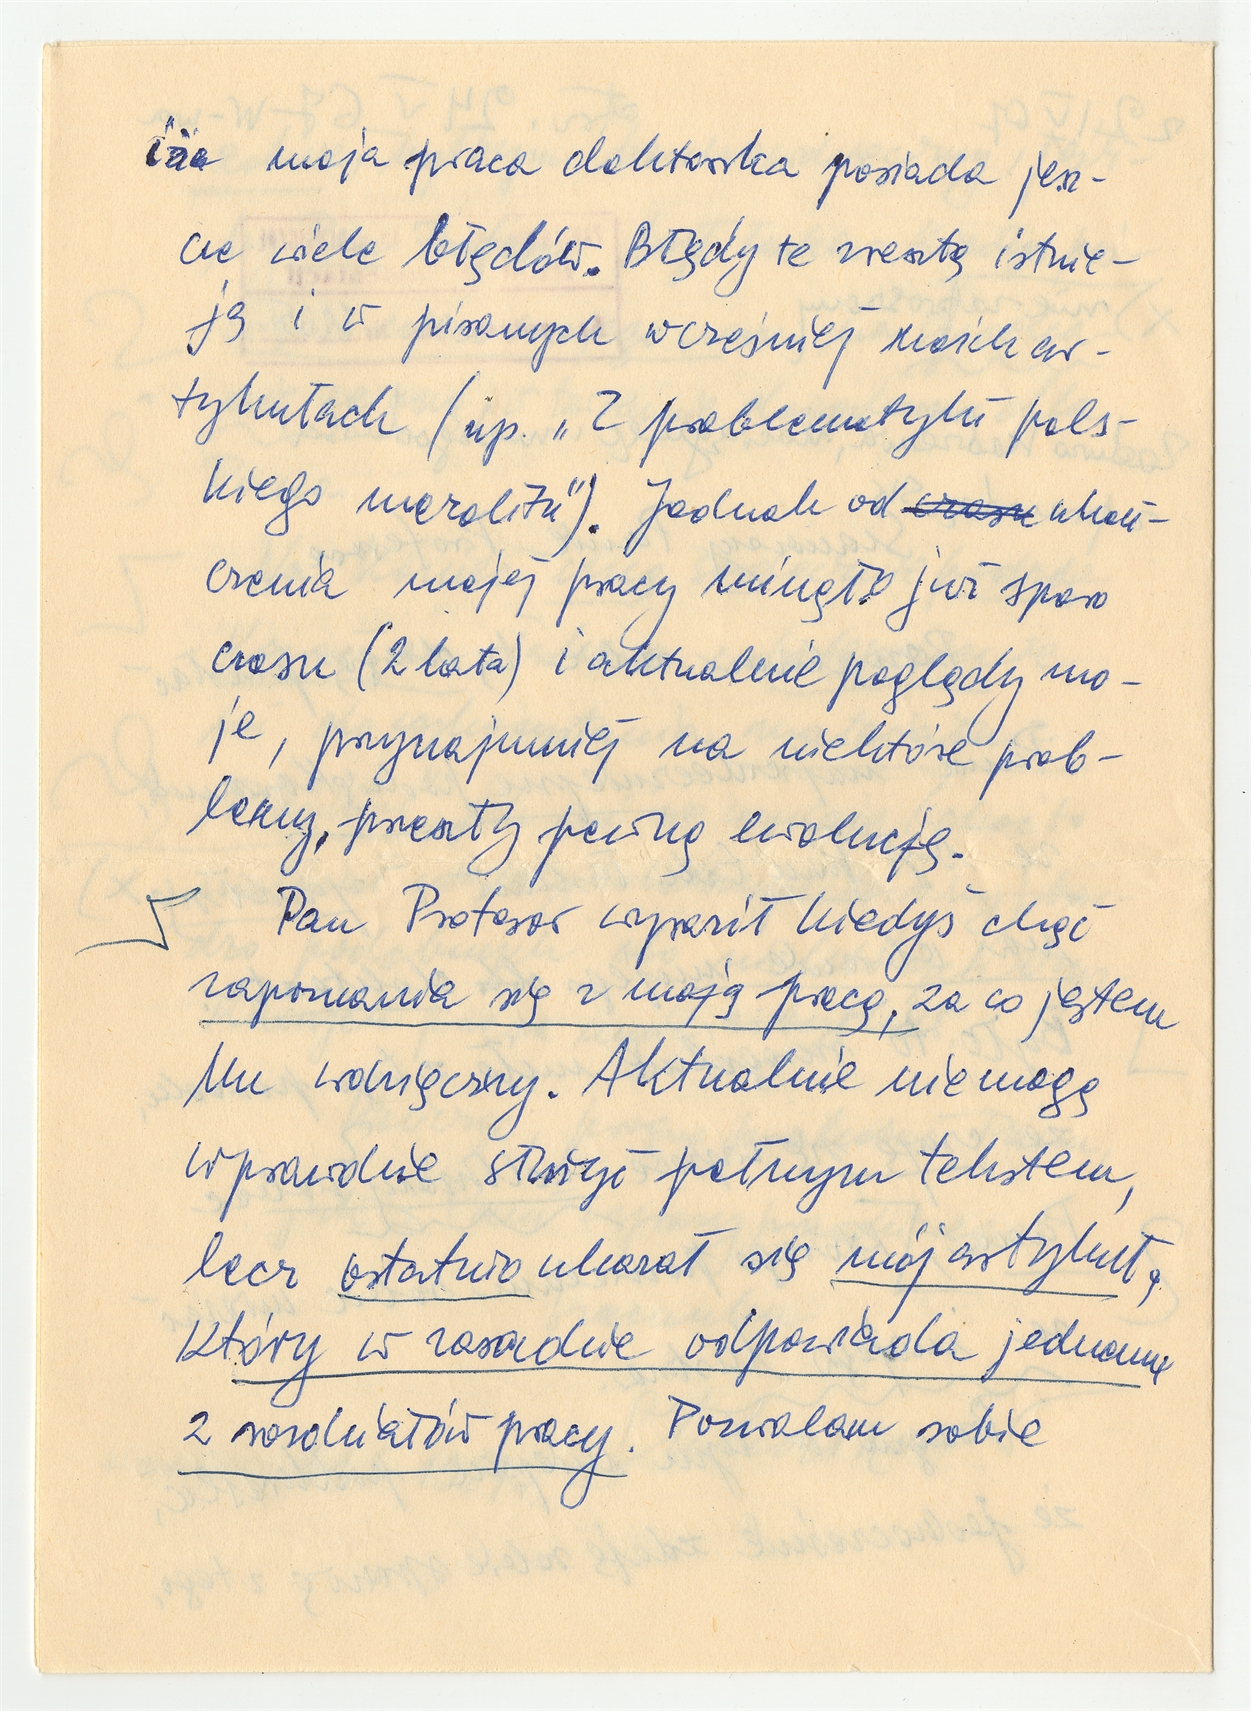 iże moja praca doktorska posiada jesz-
cze wiele błędów. Błędy te zresztą istnie-
ją i w pisanych wcześniej moich ar-
tykułach (np. „Z problematyki pols-
kiego moralitu"). Jednak od czasu ukoń-
czenia mojej pracy minęło już sporo
czasu (2 lata) i aktualnie poglądy mo-
je, przynajmniej na niektóre prob-
lemy, przeszły pewną ewolucję.
Pan Profesor wyraził kiedyś chęć
zapoznania się z moją pracą, za co jestem
Mu wdzięczny. Aktualnie nie mogę
wprawdzie służyć pełnym tekstem,
lecz ostatnio ukazał się mój artykuł,
który w zasadzie odpowiada jednemu
z rozdziałów pracy. Pozwalam sobie